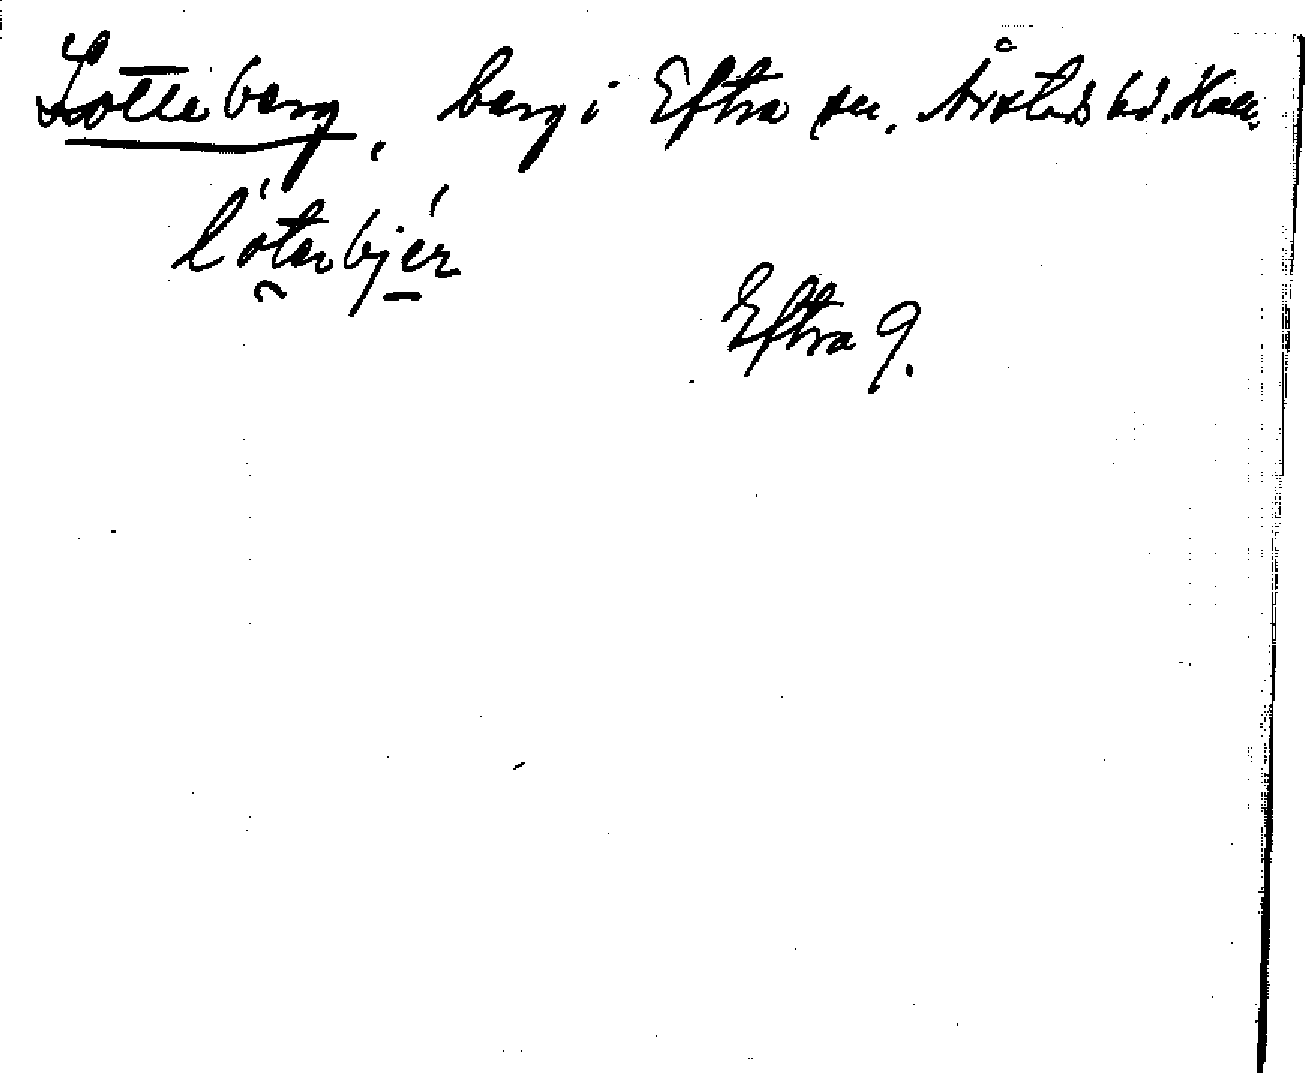 Lotteberg, berg i Eftra sn. Årstads hd. Hall.
lótarbjér
Eftra 9.